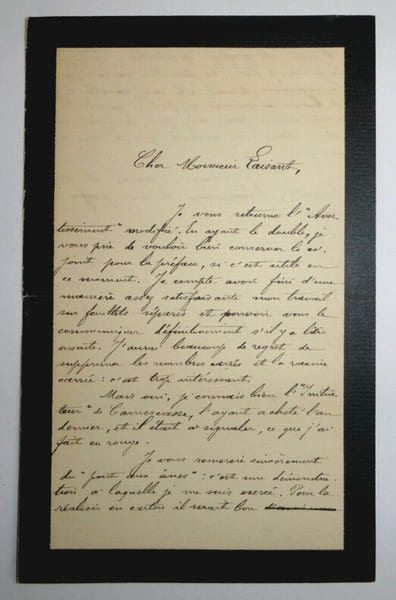 Cher Monsieur Laisant,
Je vous retourne l'"Aver-
tissement" modifié. En ayant le double, je
vous prie de vouloir bien conserver le ci-
joint pour la préface, si c'est utile en
ce moment. Je compte avoir fini d'une
manière assez satisfaisante mon travail
sur feuillets séparés et pouvoir vous le
communiquer définitivement s'il y a lieu
ensuite. J'aurai beaucoup de regret de
supprimer les nombres carrés et la racine
carrée : c'est trop intéressant.
Mais oui, je connais bien l'"Initia-
teur" de Camescasse, l'ayant acheté l'an
dernier, et il était à signaler, ce que j'ai
fait en rouge.
Je vous remercie sincèrement
du "pont aux ânes" : c'est une démonstra-
tion à laquelle je me suis exercé. Pour la
réaliser en carton il serait bon